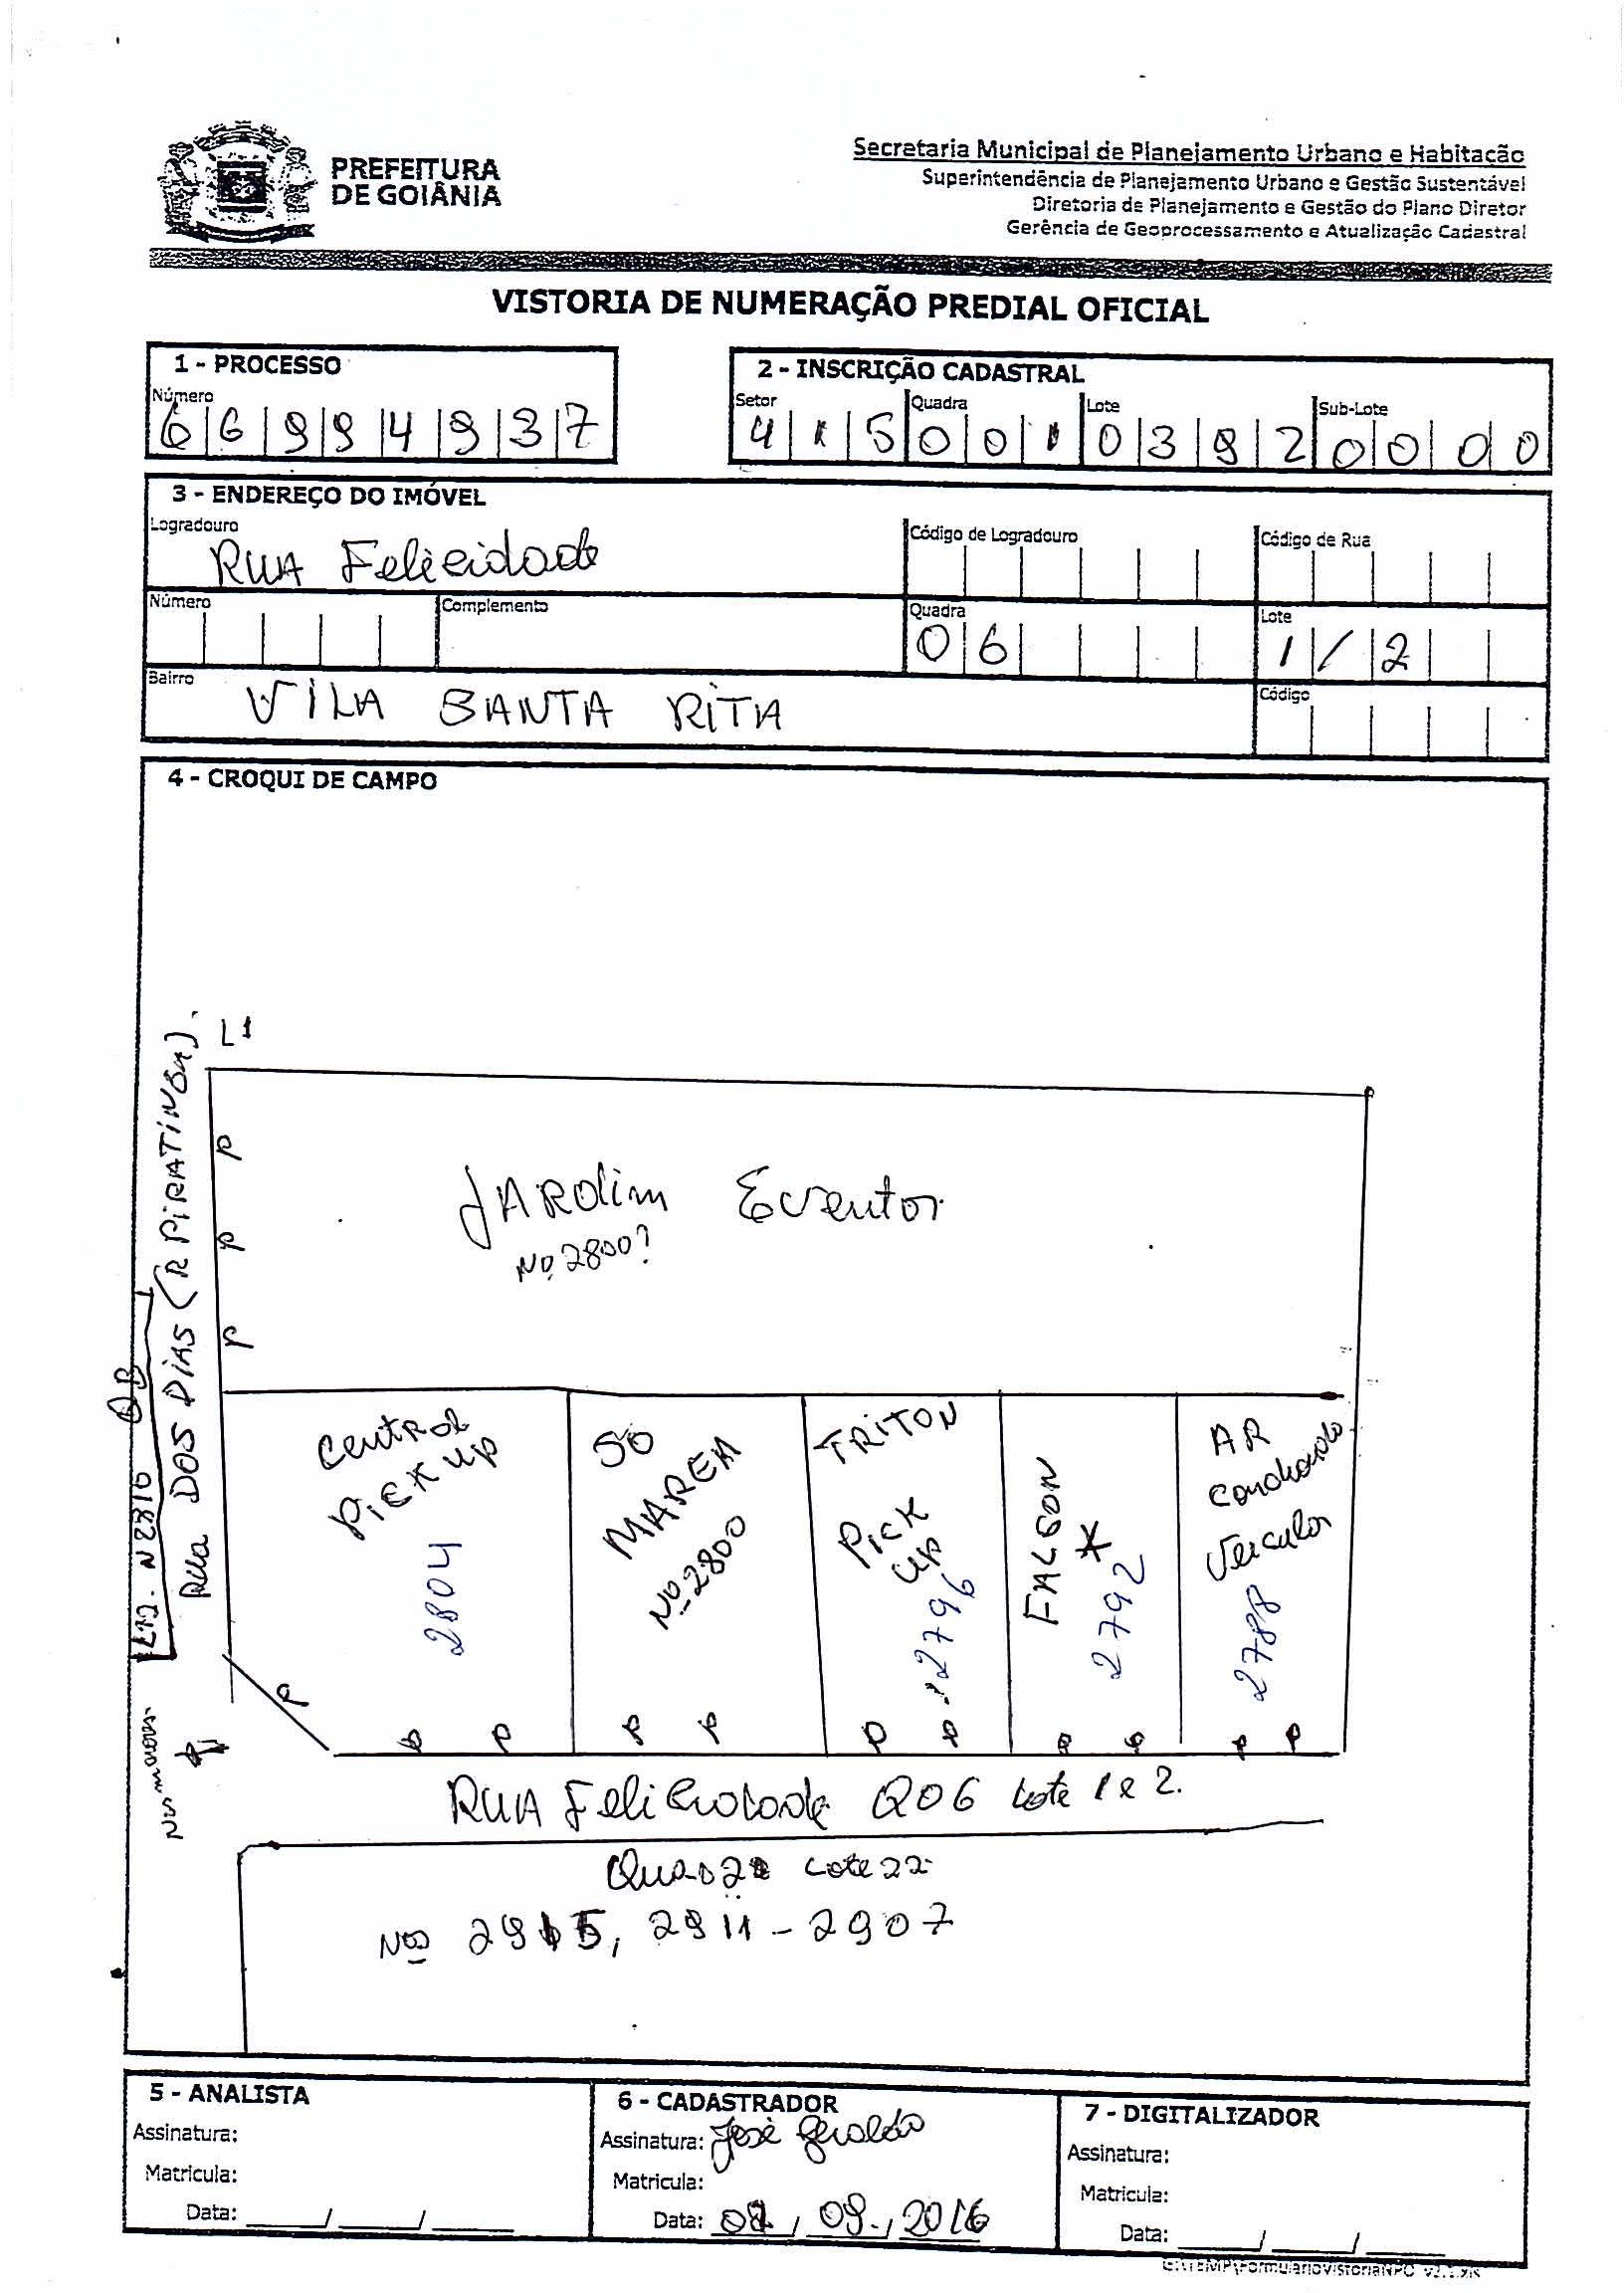 PREFEITURA
DE GOIÂNIA
Secretaria Municipal de Planejamento Urbano e Habitação
Superintendência de Planejamento Urbano e Gestão Sustentável
Diretoria de Planejamento e Gestão do Plano Diretor
Gerência de Geoprocessamento e Atualização Cadastral
VISTORIA DE NUMERAÇÃO PREDIAL OFICIAL
1 - PROCESSO
Número
66994937
2 - INSCRIÇÃO CADASTRAL
Setor Quadra Lote Sub-Lote
415 001 0392 0000
3 - ENDEREÇO DO IMÓVEL
Logradouro Código de Logradouro Código de Rua
RUA Felicidade
Número Complemento Quadra Lote
06 1/2
Bairro Código
VILA SANTA RITA
4 - CROQUI DE CAMPO
L1
Rua DOS DIAS (R PIRATININGA).
Nº 2816
JARdim Eventos
Nº 2800?
Central
Pick up
2804
SÓ
MAREA
Nº 2800
TRITON
Pick
up
2796
FALSON
*
2792
AR
Condicionado
Veiculos
2788
RUA Felicidade Q06 Lote 1 e 2.
Lote 22
Nos 2915, 2911 - 2907
5 - ANALISTA
Assinatura:
Matricula:
Data: ___/___/___
6 - CADASTRADOR
Assinatura: José Geraldo
Matricula:
Data: 09/2016
7 - DIGITALIZADOR
Assinatura:
Matricula:
Data: ___/___/___